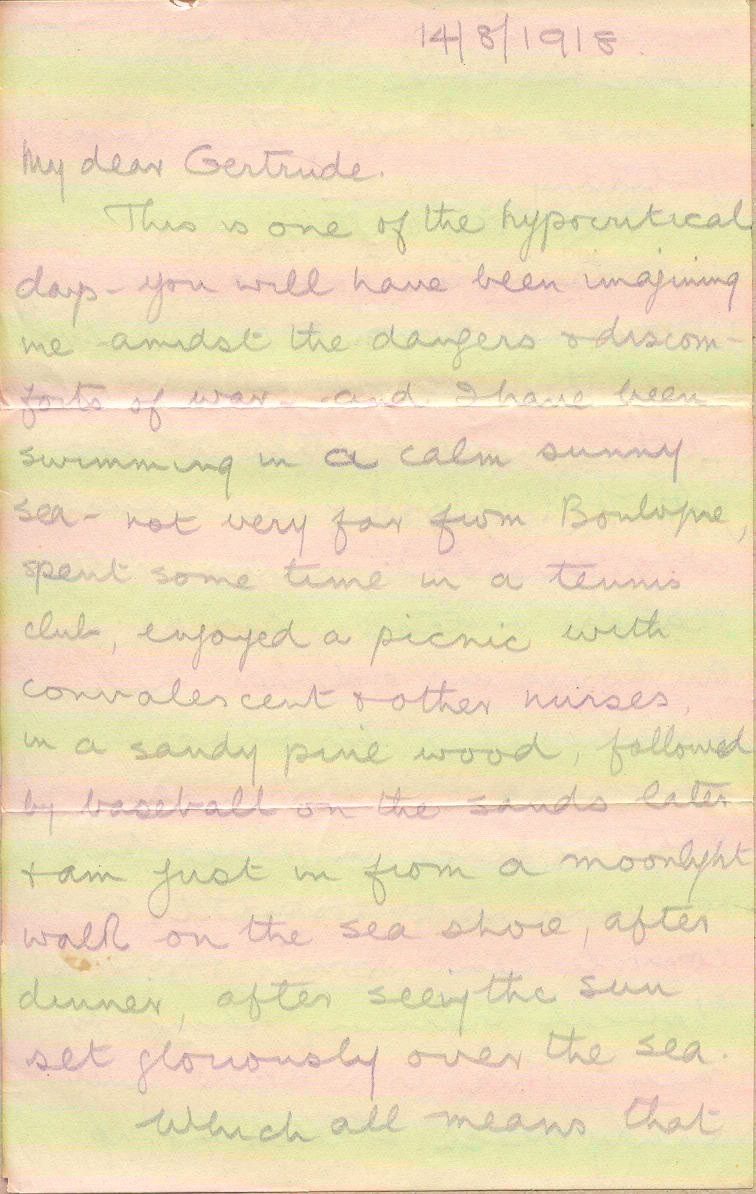 14/8/1918.
My dear Gertrude.
This is one of the hypocritical
days - you will have been imagining
me amidst the dangers & discom-
forts of war - and I have been
swimming in a calm sunny
sea - not very far from Boulogne,
spent some time in a tennis
club, enjoyed a picnic with
convalescent & other nurses,
in a sandy pine wood, followed
by baseball on the sands later
& am just in from a moonlight
walk on the sea shore, after
dinner, after seeing the sun
set gloriously over the sea.
Which all means that